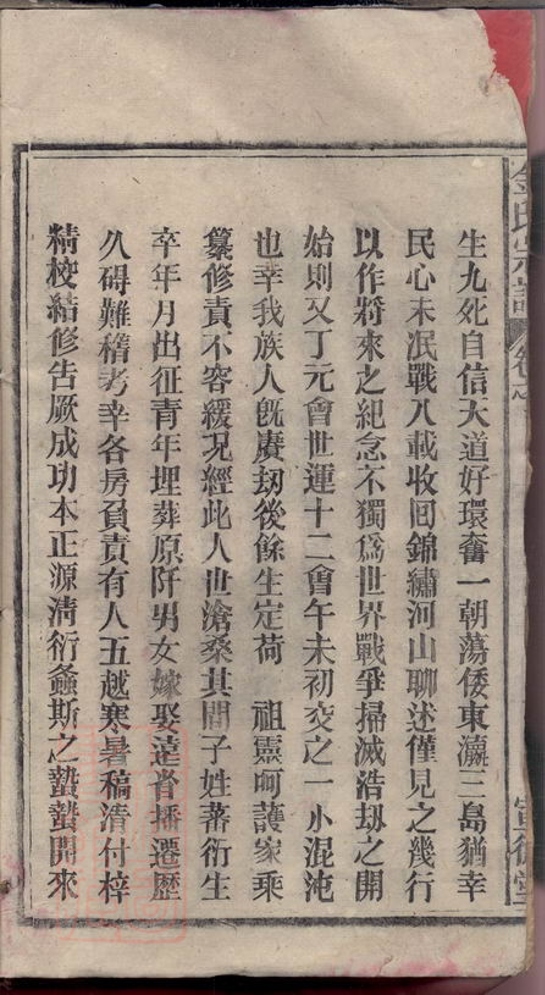 金氏宗譜 卷之
生九死自信天道好環奮一朝蕩倭東瀛三島猶幸
民心未泯戰八載收回錦繡河山聊述僅見之幾行
以作將來之紀念不獨爲世界戰爭掃滅浩劫之開
始則又丁元會世運十二會午未初交之一小混沌
也幸我族人旣賡劫後餘生定荷 祖靈呵護家乘
纂修責不容緩况經此人世滄桑其間子姓蕃衍生
卒年月出征靑年埋葬原阡男女嫁娶遠眷播遷歷
久碍難稽考幸各房負責有人五越寒暑稿淸付梓
精校結修告厥成功本正源淸衍螽斯之蟄蟄開來